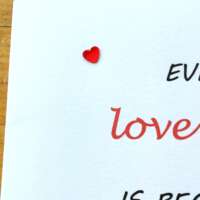 EV
love
IS BE